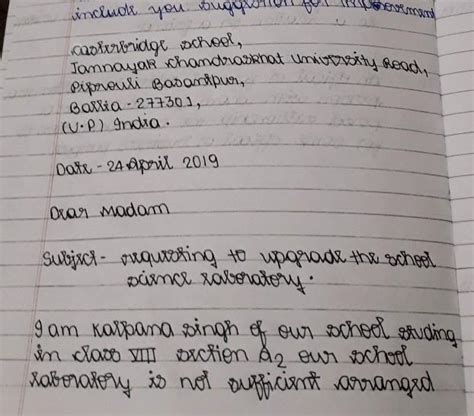 include you suggestion for improvement
Casterbridge school,
Jannayak Chandrashat University Road,
Piprauli Basantpur,
Ballia - 277301,
(U.P) India.
Date - 24 April 2019
Dear Madam
Subject - requesting to upgrade the school
science laboratory.
I am Kalpana singh of our school studing
in class VIII section A2 our school
laboratory is not sufficient arranged